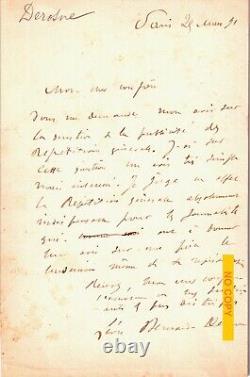 Derosne
Paris 26 Mars 91
Mon cher confrère
Vous me demandez mon avis sur
la question de la publicité des
Répétitions générales. J'ai sur
cette question un avis très simple
mais . Je juge en effet
la Répétition générale absolument
indispensable pour le journaliste
qui a à donner
son avis sur une pièce le
lendemain même de la représentation
Recevez, mon cher confrère,
l'assurance de mes
sentiments les plus distingués
Léon Bernard Derosne
NO COPY